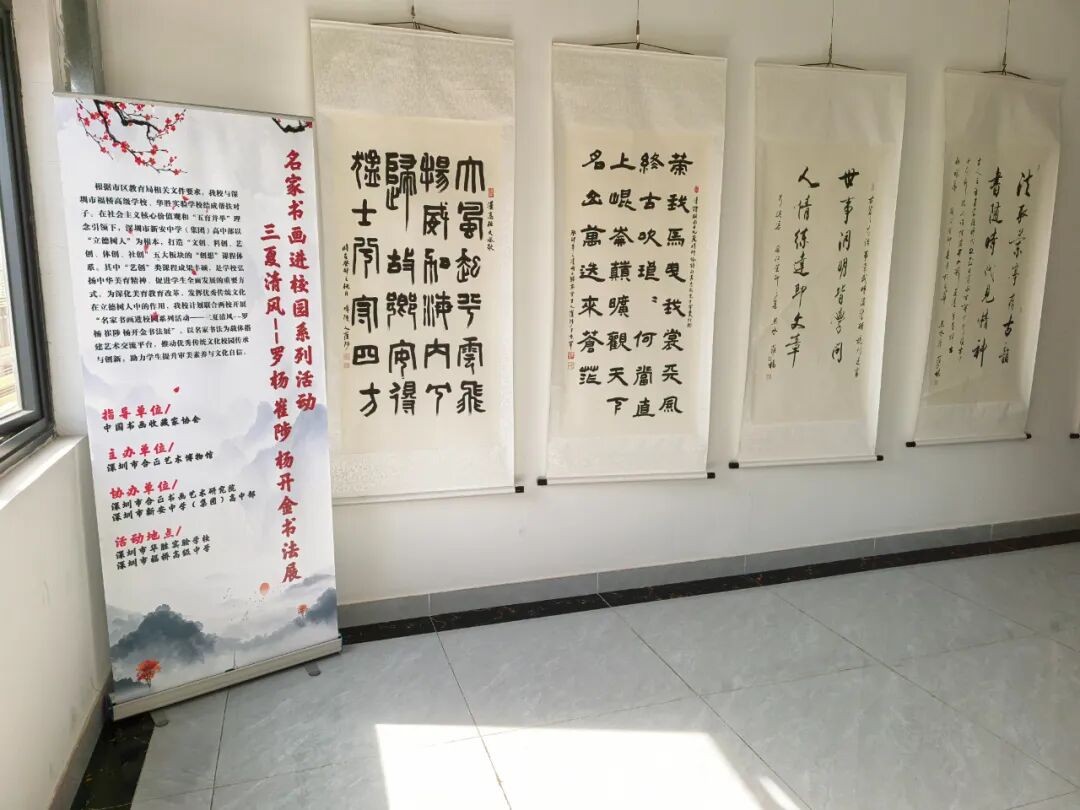 名家书画进校园系列活动
三夏清风——罗杨 崔陟 杨开金书法展
根据市区教育局相关文件要求，我校与深
圳市福桥高级学校、华胜实验学校结成帮扶对
子。在社会主义核心价值观和“五育并举”理
念引领下，深圳市新安中学（集团）高中部以
“立德树人”为根本，打造“文创、科创、艺
创、体创、社创”五大板块的“创想”课程体
系。其中“艺创”类课程成果丰硕，是学校弘
扬中华美育精神、促进学生全面发展的重要方
式。为深化美育教育改革，发挥优秀传统文化
在立德树人中的作用，我校计划联合两校开展
“名家书画进校园系列活动——三夏清风——罗
杨 崔陟 杨开金书法展”，以名家书法为载体搭
建艺术交流平台，推动优秀传统文化校园传承
与创新，助力学生提升审美素养与文化自信。
指导单位/
中国书画收藏家协会
主办单位/
深圳市合正艺术博物馆
协办单位/
深圳市合正书画艺术研究院
深圳市新安中学（集团）高中部
活动地点/
深圳市华胜实验学校
深圳市福桥高级中学
漢高祖大風歌
大風起兮雲飛
揚威加海内兮
歸故鄉安得
猛士兮守四方
策我馬曳我裳天風
終古吹琅〻何當直
上崐崙巔曠觀天下
名山萬迭來蒼茫
世事洞明皆學問
人情練達即文章
法取蘭亭存古韻
書隨時代見精神